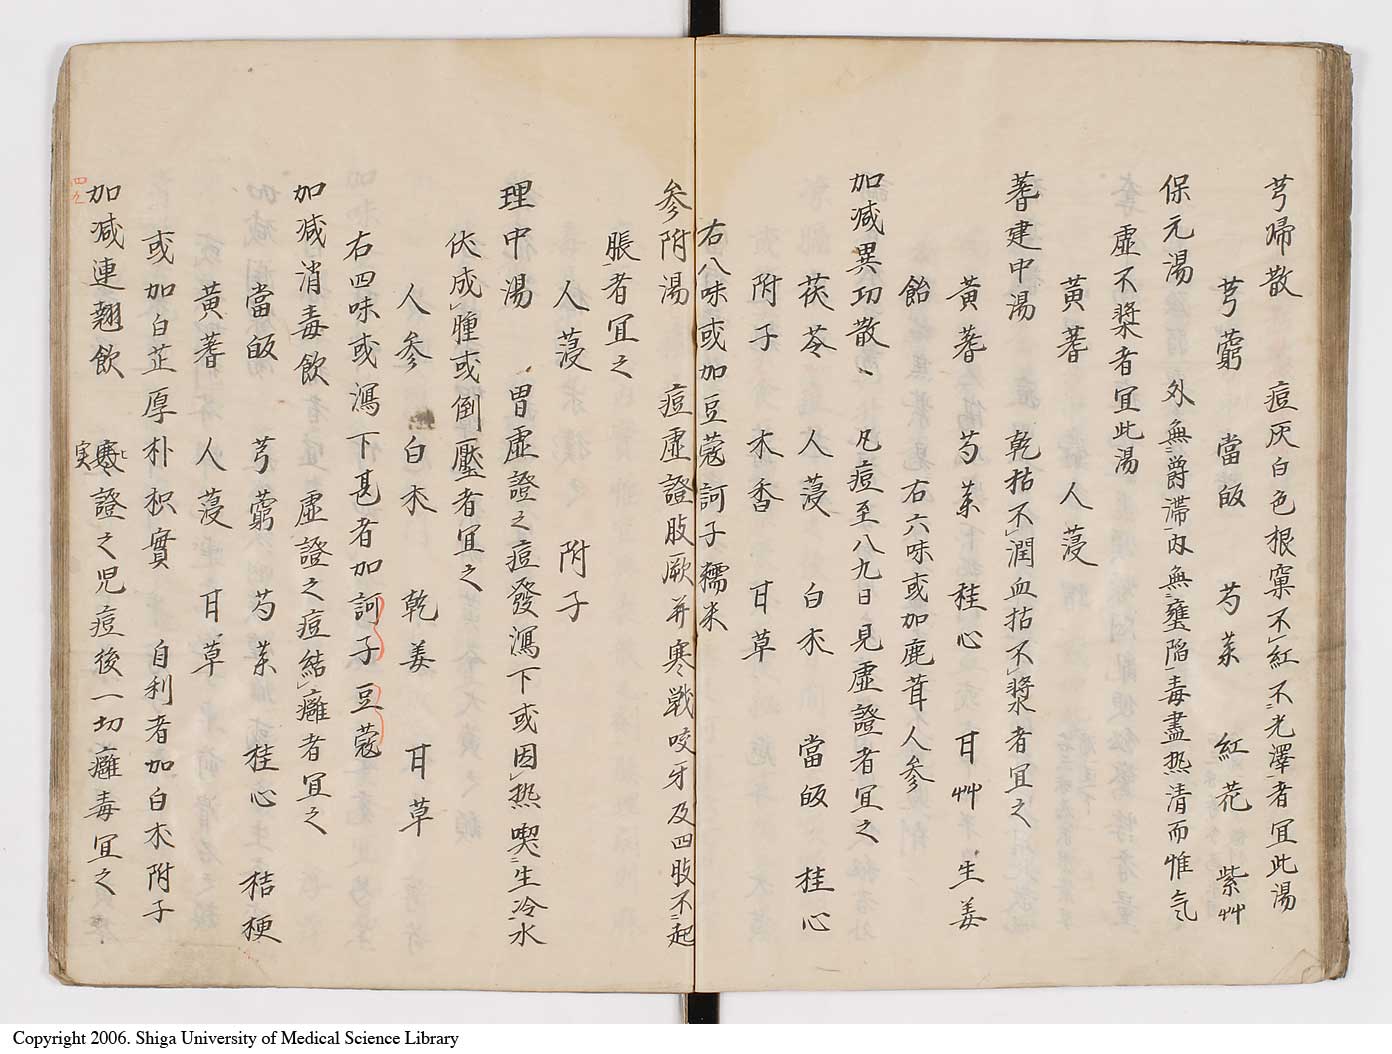 芎帰散　痘灰白色根窠不紅不光澤者宜此湯
芎藭　當皈　芍薬　紅花　紫艸
保元湯　外無爵滞内無壅陥毒盡热清而惟気
虚不漿者宜此湯
黄蓍　人薓
蓍建中湯　乾枯不潤血拈不漿者宜之
黄蓍　芍薬　桂心　甘艸　生姜
飴　右六味或加鹿茸人参
加減異功散　凡痘至八九日見虚證者宜之
茯苓　人薓　白朮　當皈　桂心
附子　木香　甘草
右八味或加豆蔻訶子糯米
参附湯　痘虚證肢厥并寒戦咬牙及四肢不起
脹者宜之
人薓　附子
理中湯　胃虚證之痘發瀉下或因热喫生冷水
伏成腫或倒壓者宜之
人参　白朮　乾姜　甘草
右四味或瀉下甚者加訶子豆蔻
加減消毒飲　虚證之痘結癰者宜之
當皈　芎藭　芍薬　桂心　桔梗
黄蓍　人薓　甘草
或加白芷厚朴枳實　自利者加白朮附子
加減連翹飲　熱證之児痘後一切癰毒宜之
実
四九
Copyright 2006. Shiga University of Medical Science Library